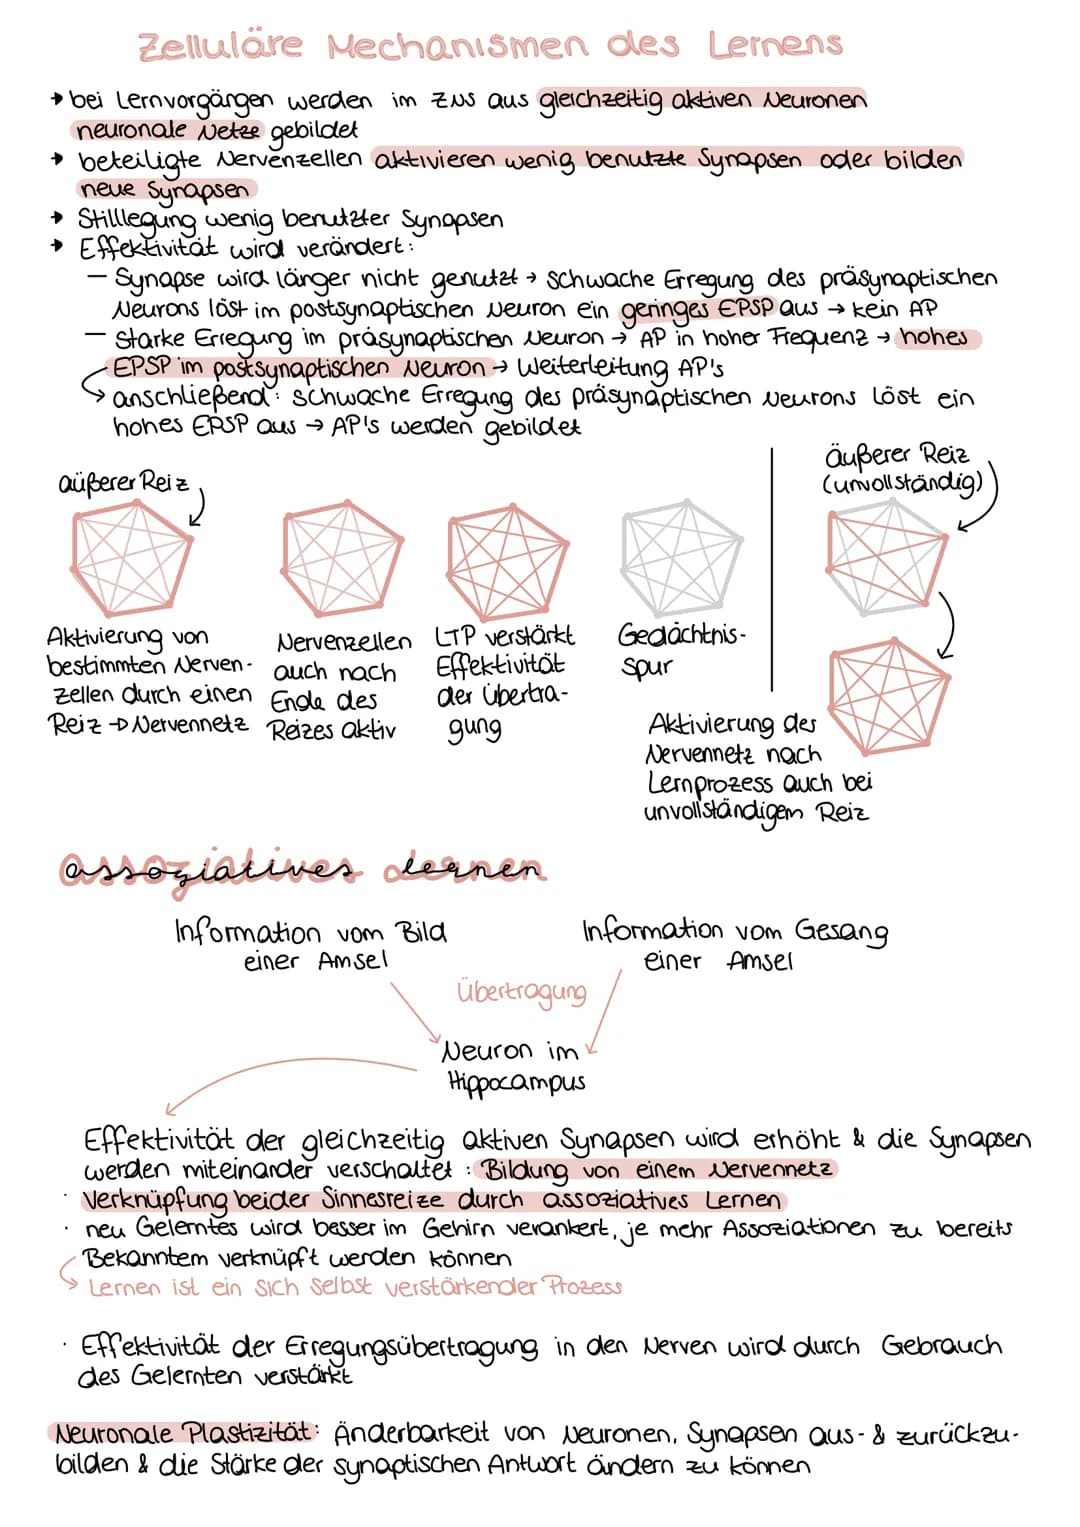 Zelluläre Mechanismen des Lernens
→ bei Lernvorgängen werden im ZNS aus gleichzeitig aktiven Neuronen
neuronale Netze gebildet
→ beteiligte Nervenzellen aktivieren wenig benutzte Synapsen oder bilden
neue Synapsen
→ Stilllegung wenig benutzter Synapsen
→ Effektivität wird verändert:
– Synapse wird länger nicht genutzt → schwache Erregung des präsynaptischen
Neurons löst im postsynaptischen Neuron ein geringes EPSP aus → kein AP
– starke Erregung im präsynaptischen Neuron → AP in hoher Frequenz → hohes
EPSP im postsynaptischen Neuron → Weiterleitung AP's
↳ anschließend: schwache Erregung des präsynaptischen Neurons löst ein
hohes EPSP aus → AP's werden gebildet
aüßerer Reiz
Aktivierung von
bestimmten Nerven-
zellen durch einen
Reiz → Nervennetz
Nervenzellen
auch nach
Ende des
Reizes aktiv
LTP verstärkt
Effektivität
der Übertra-
gung
Gedächtnis-
spur
äußerer Reiz
(unvollständig)
Aktivierung des
Nervennetz nach
Lernprozess auch bei
unvollständigem Reiz
assoziatives Lernen
Information vom Bild
einer Amsel
Information vom Gesang
einer Amsel
Übertragung
Neuron im
Hippocampus
Effektivität der gleichzeitig aktiven Synapsen wird erhöht & die Synapsen
werden miteinander verschaltet : Bildung von einem Nervennetz
· Verknüpfung beider Sinnesreize durch assoziatives Lernen
· neu Gelerntes wird besser im Gehirn verankert, je mehr Assoziationen zu bereits
Bekanntem verknüpft werden können
↳ Lernen ist ein sich selbst verstärkender Prozess
· Effektivität der Erregungsübertragung in den Nerven wird durch Gebrauch
des Gelernten verstärkt
Neuronale Plastizität: Änderbarkeit von Neuronen, Synapsen aus- & zurückzu-
bilden & die Stärke der synaptischen Antwort ändern zu können